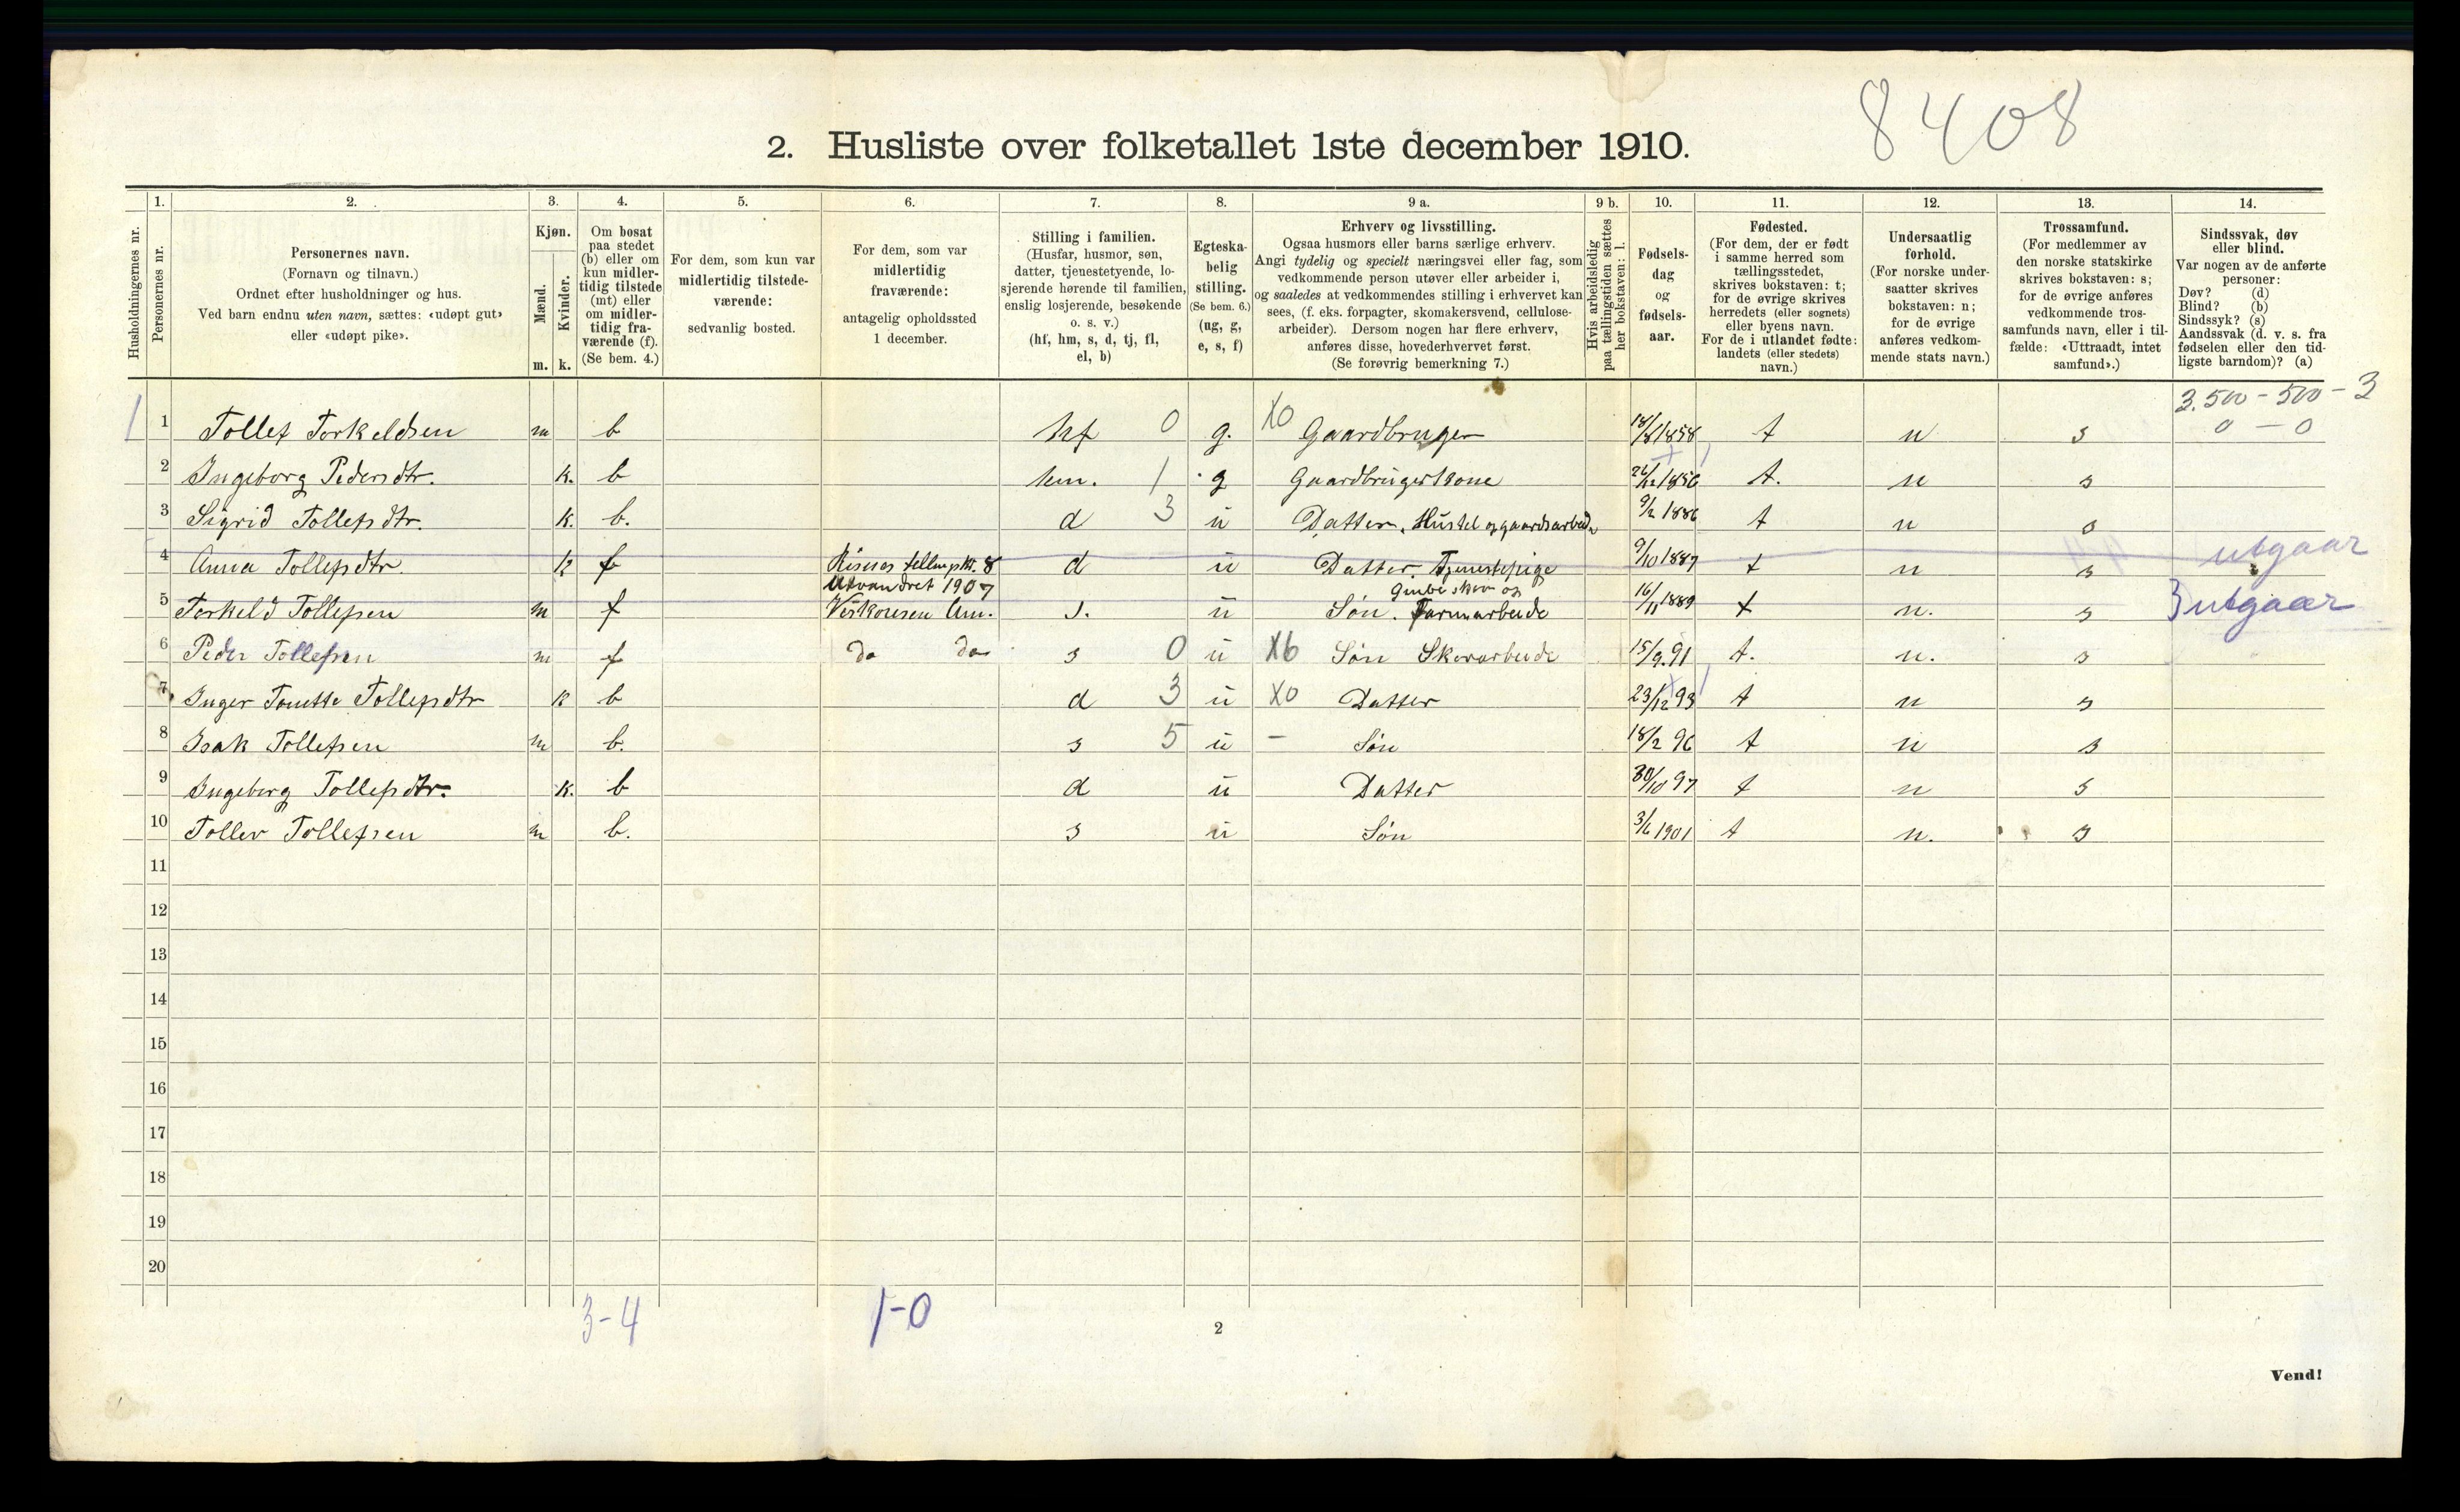 8408
2. Husliste over folketallet 1ste december 1910.
Husholdningernes nr.
1.
Personernes nr.
2.
Personernes navn.
(Fornavn og tilnavn.)
Ordnet efter husholdninger og hus.
Ved barn endnu uten navn, sættes: «udøpt gut»
eller «udøpt pike».
3.
Kjøn.
Mænd.
Kvinder.
m. k.
4.
Om bosat
paa stedet
(b) eller om
kun midler-
tidig tilstede
(mt) eller
om midler-
tidig fra-
værende (f).
(Se bem. 4.)
5.
For dem, som kun var
midlertidig tilstede-
værende:
sedvanlig bosted.
6.
For dem, som var
midlertidig
fraværende:
antagelig opholdssted
1 december.
7.
Stilling i familien.
(Husfar, husmor, søn,
datter, tjenestetyende, lo-
sjerende hørende til familien,
enslig losjerende, besøkende
o. s. v.)
(hf, hm, s, d, tj, fl,
el, b)
8.
Egteska-
belig
stilling.
(Se bem. 6.)
(ug, g,
e, s, f)
9 a.
Erhverv og livsstilling.
Ogsaa husmors eller barns særlige erhverv.
Angi tydelig og specielt næringsvei eller fag, som
vedkommende person utøver eller arbeider i,
og saaledes at vedkommendes stilling i erhvervet kan
sees, (f. eks. forpagter, skomakersvend, cellulose-
arbeider). Dersom nogen har flere erhverv,
anføres disse, hovederhvervet først.
(Se forøvrig bemerkning 7.)
9 b.
Hvis arbeidsledig
paa tællingstiden sættes
her bokstaven: l.
10.
Fødsels-
dag
og
fødsels-
aar.
11.
Fødested.
(For dem, der er født
i samme herred som
tællingsstedet,
skrives bokstaven: t;
for de øvrige skrives
herredets (eller sognets)
eller byens navn.
For de i utlandet fødte:
landets (eller stedets)
navn.)
12.
Undersaatlig
forhold.
(For norske under-
saatter skrives
bokstaven: n;
for de øvrige
anføres vedkom-
mende stats navn.)
13.
Trossamfund.
(For medlemmer av
den norske statskirke
skrives bokstaven: s;
for de øvrige anføres
vedkommende tros-
samfunds navn, eller i til-
fælde: «Uttraadt, intet
samfund».)
14.
Sindssvak, døv
eller blind.
Var nogen av de anførte
personer:
Døv? (d)
Blind? (b)
Sindssyk? (s)
Aandssvak (d. v. s. fra
fødselen eller den tid-
ligste barndom)? (a)
3.500 - 500 - 3
1 1 Tollef Torkeldsen m b hf 0 g. X0 Gaardbruger 1858 t n s 0 - 0
2 Ingeborg Pedersdtr. k. b hm. 1 g Gaardbrugerkone 1856 t. n s
3 Sigrid Tollefsdtr. k. b. d 3 u Datter. Hustel og gaardsarbeide 9/2 1886 t n s
4 Anna Tollefsdtr. k f Risnes tellingskr. 8 d u Datter. Tjenestepige 9/10 1887 t n s utgaar
Utvandret 1907 skov og
5 Torkeld Tollefsen m f Am. s. u Søn. Farmarbeide 16/11 1889 t n. s 3 utgaar
6 Peder Tollefsen m f do do s 0 u X6 Søn Skovarbeide 15/9.91 t. n. s
7 Inger Tonette Tollefsdtr k b d 3 u X0 Datter 23/12 93 t n s
8 Isak Tollefsen m b. s 5 u - Søn 18/2 96 t n s
9 Ingeborg Tollefsdtr. k. b d u Datter 30/10 97 t n s
10 Tollev Tollefsen m b. s u Søn 3/6 1901 t n. s
11
12
13
14
15
16
17
18
19
20
3-4 1-0
2
Vend!